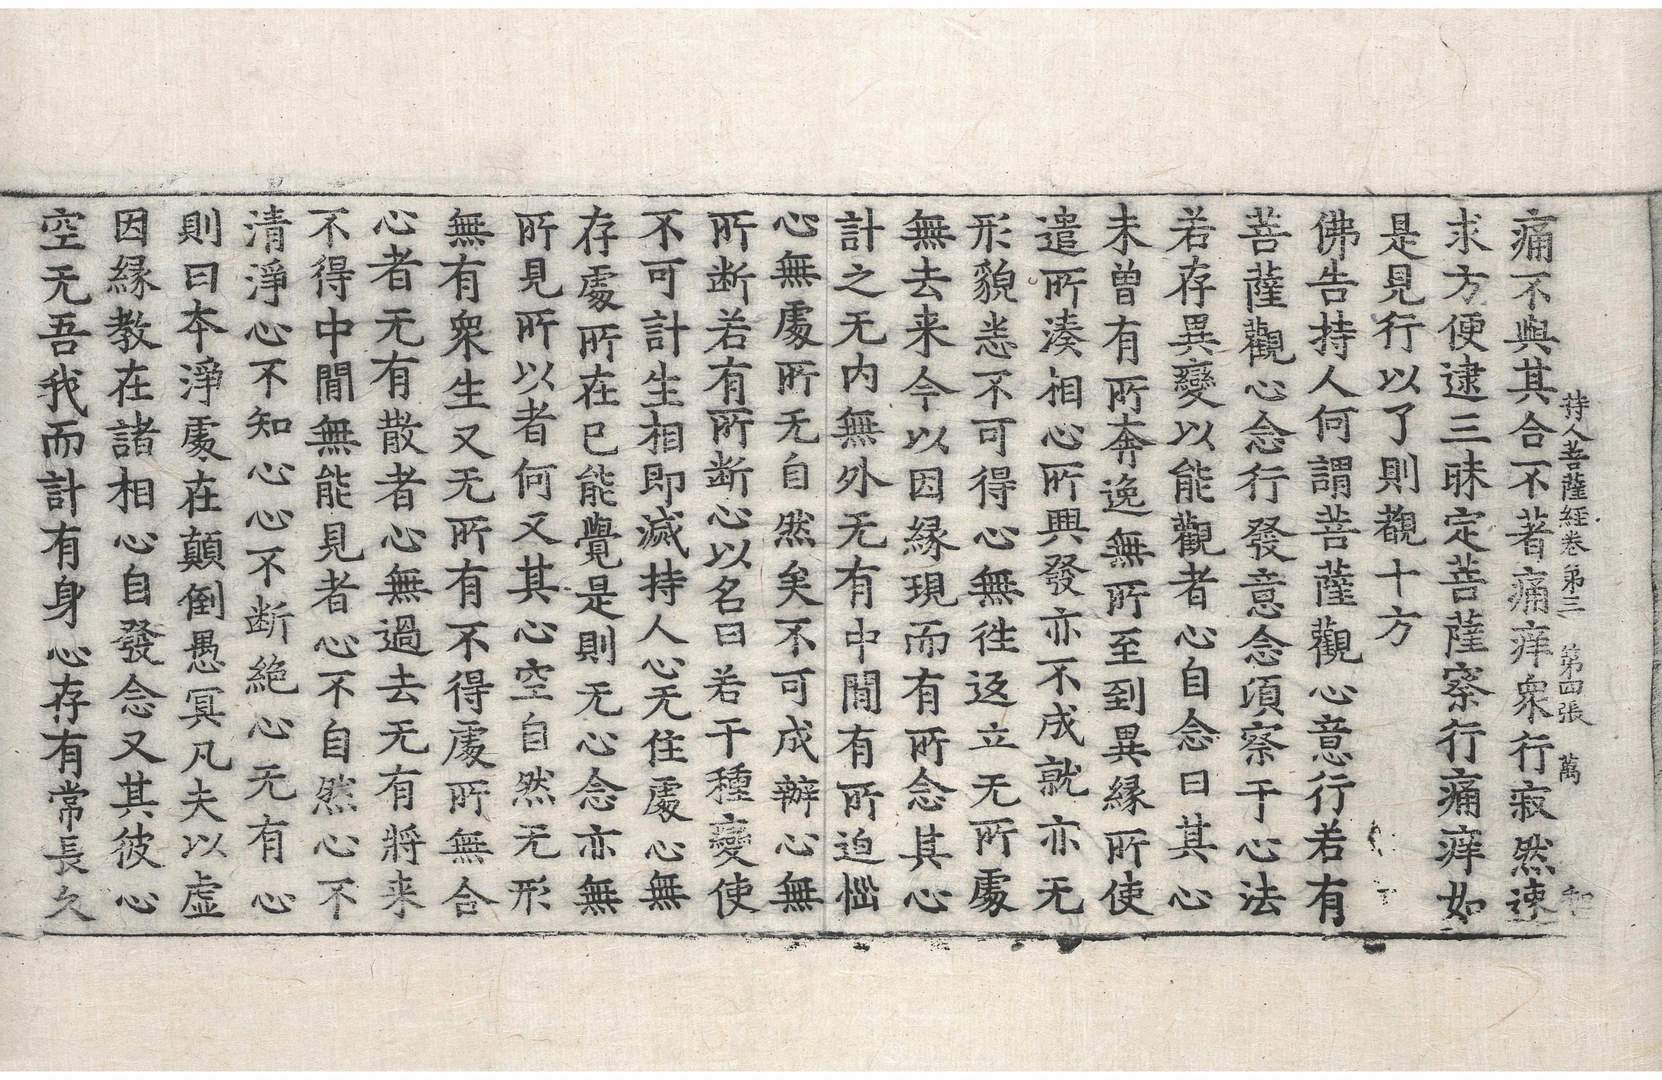 持人菩薩經卷第三 第四張 萬
痛不與其合不著痛痒衆行寂然速
求方便逮三昧定菩薩察行痛痒如
是見行以了則觀十方
佛告持人何謂菩薩觀心意行若有
菩薩觀心念行發意念湏察于心法
若存異變以能觀者心自念曰其心
未曾有所奔逸無所至到異緣所使
遣所湊相心所興發亦不成就亦无
形貌悉不可得心無徃返立无所處
無去来今以因緣現而有所念其心
計之无内無外无有中間有所迫惱
心無處所无自然矣不可成辦心無
所断若有所断心以名曰若干種變使
不可計生相即滅持人心无住處心無
存處所在已能覺是則无心念亦無
所見所以者何又其心空自然无形
無有衆生又无所有不得處所無合
心者无有散者心無過去无有將来
不得中間無能見者心不自然心不
清淨心不知心心不断絶心无有心
則曰本淨處在顛倒愚冥凡夫以虛
因緣教在諸相心自發念又其彼心
空无吾我而計有身心存有常長久